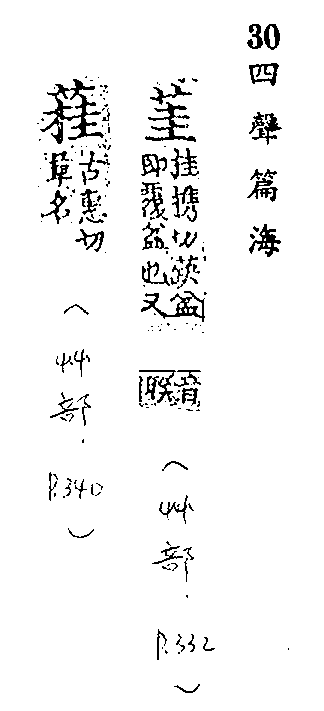 30四聲篇海
茥
挂携切蒛葐
即覆盆也又
音
(艸部.
P.332)
蓕
古惠切
草名
(艸部.
P.340)